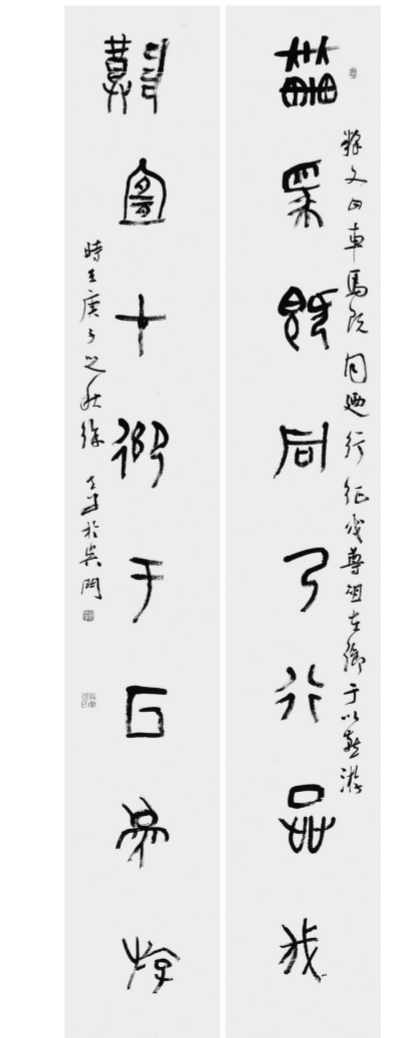 釋文曰車馬既同迺行征伐尊俎在御于以燕游
車馬既同乃行征伐
尊俎才御于以燕游
時在庚子之秋徐書於吳門